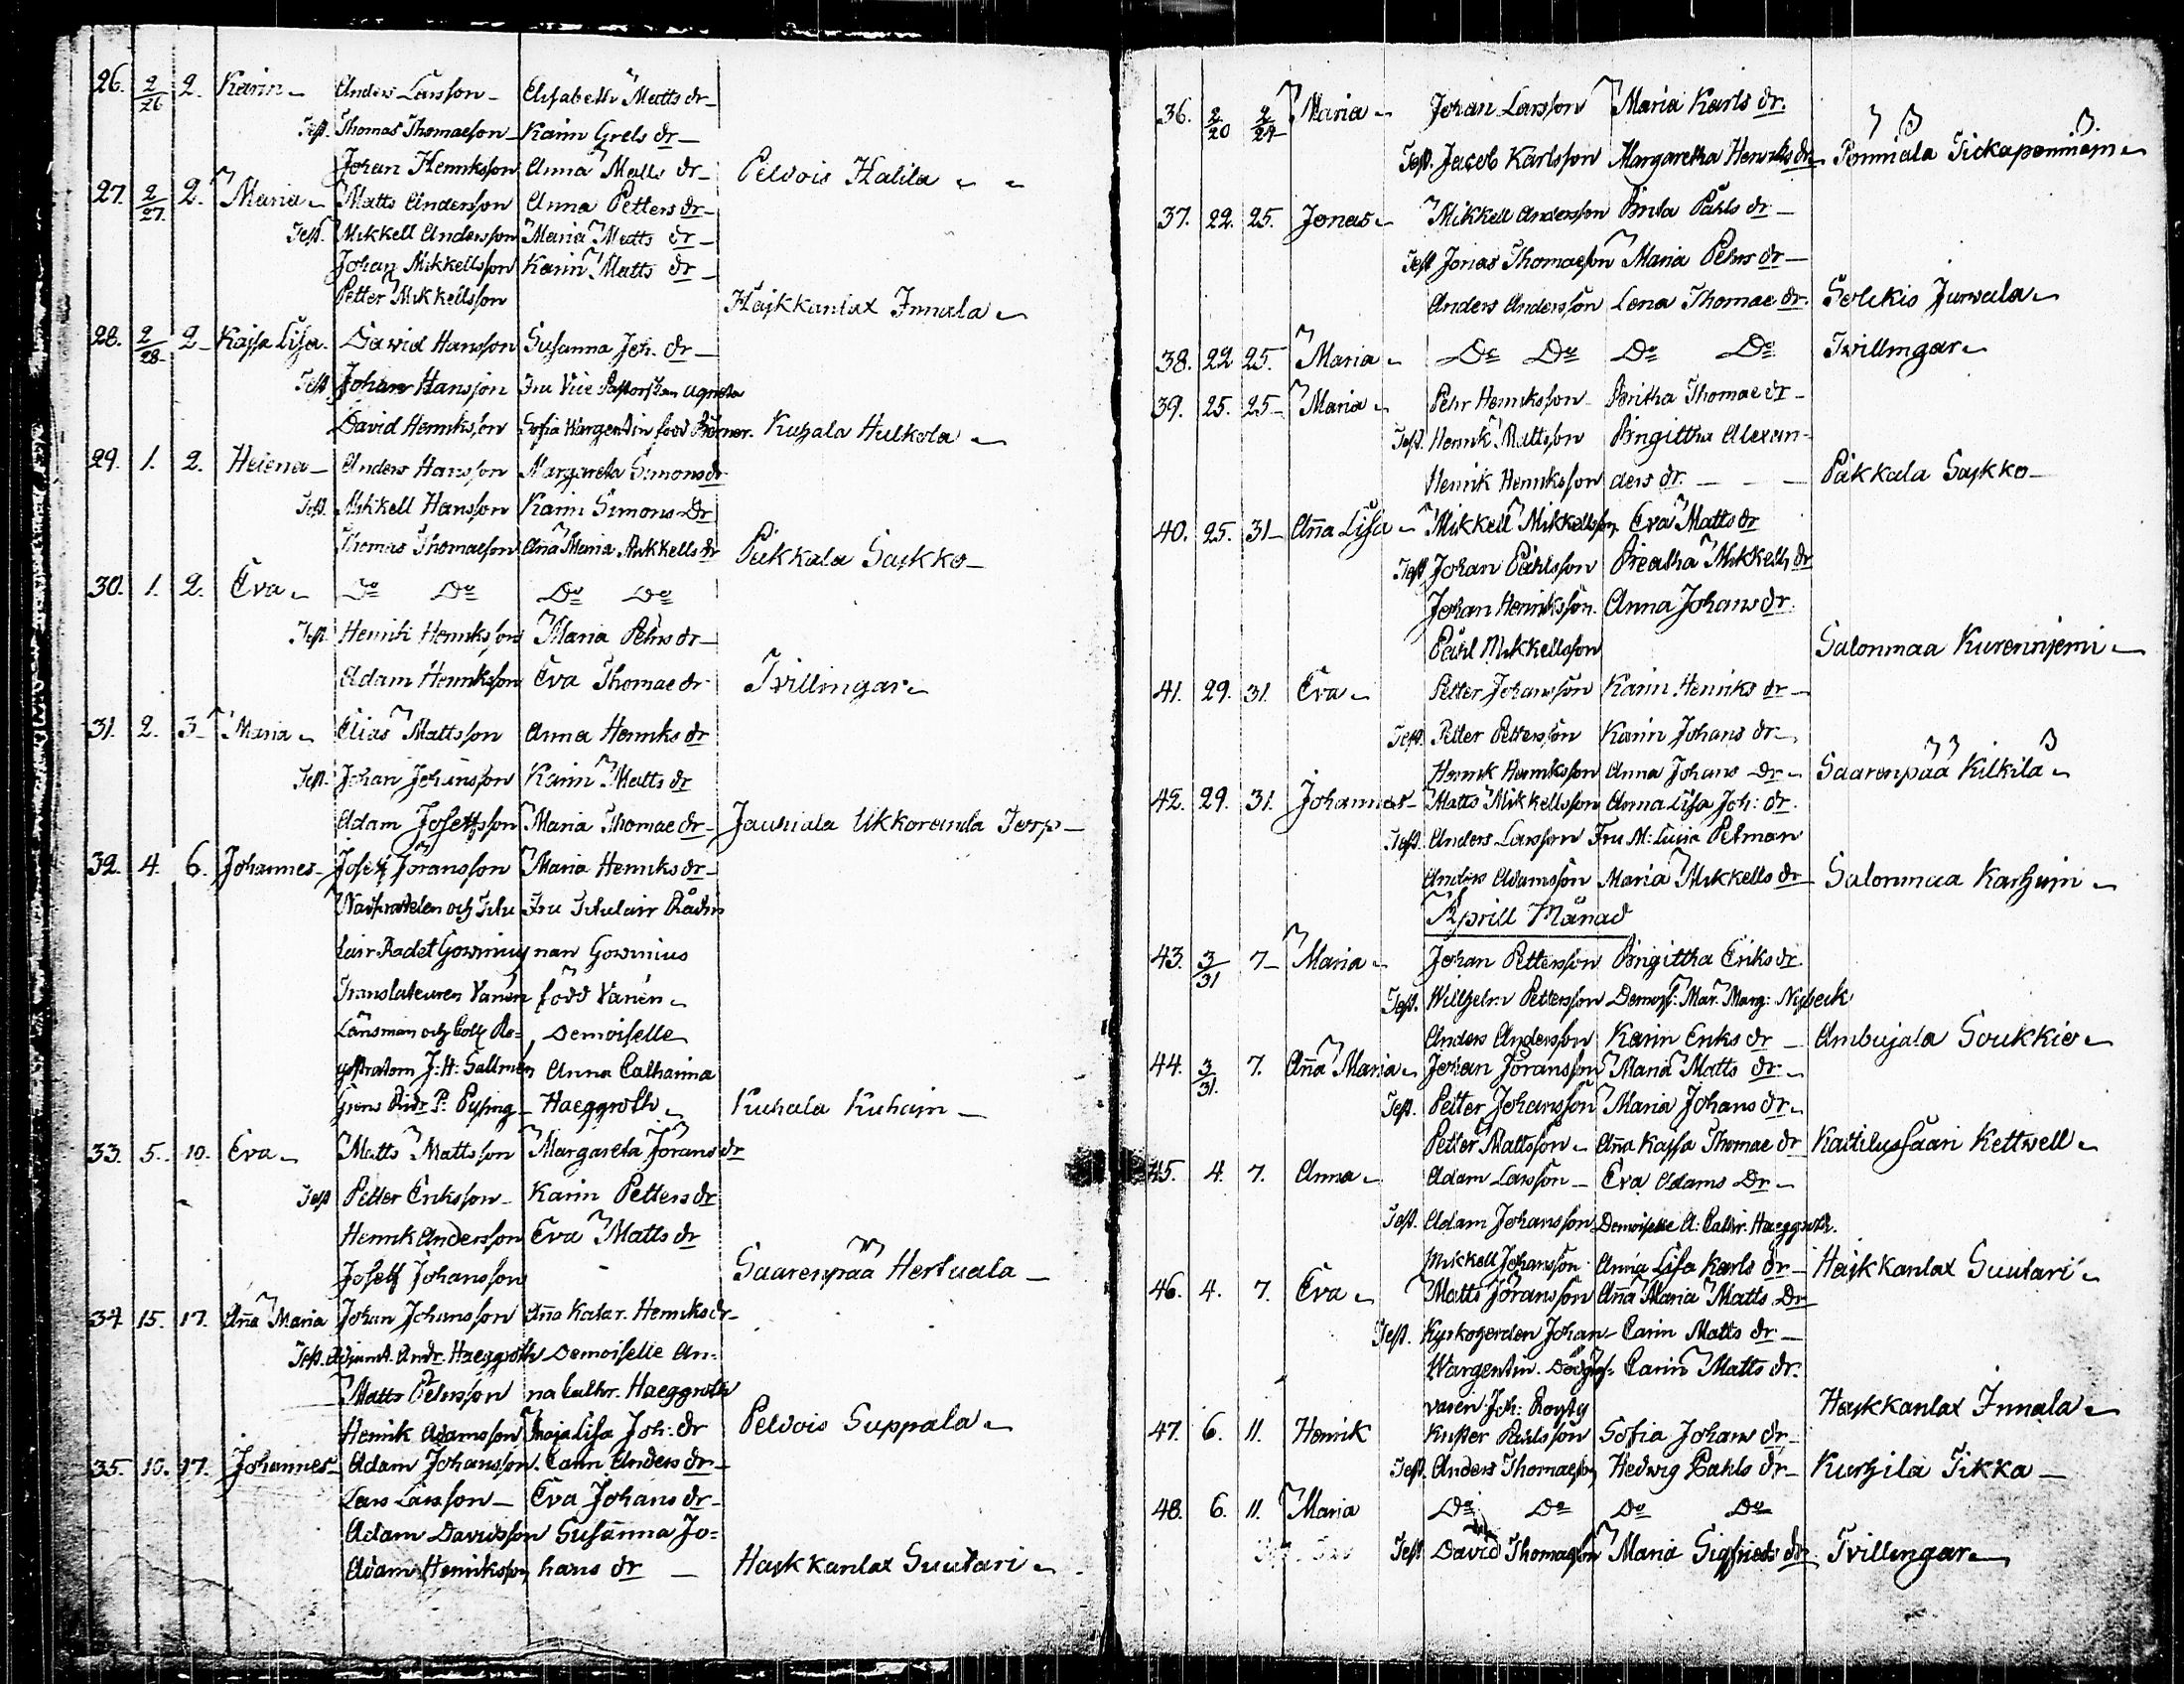 26. 2/26 2. Karin Anders Larsson Elisabeth Matts dr
Test. Thomas Thomaeson Karin Grels dr
Johan Henriksson Anna Matts dr Pelvois Halila
27. 2/27 2. Maria Matts Andersson Anna Petters dr
Test. Mikkell Andersson Maria Matts dr
Johan Mikkellsson Karin Matts dr
Petter Mikkellsson Häykkanlax Innala
28. 2/28 2 Kajsa Lisa David Hansson Susanna Joh. dr
Test Johan Hansson Fru Vice Pastorskan Agneta
David Henriksson Sofia Wargentin född
29. 1. 2. Helena Anders Hansson Margareta Simons dr
Test. Mikkell Hansson Karin Simons Dr
Thomas Thomaeson Aña Maria Mikkells dr Päkkala Saykko
30. 1. 2. Eva Do Do Do Do
Test. Henrik Henriksson Maria Pehrs dr
Adam Henriksson Eva Thomae dr Tvillingar
31. 2. 3 Maria Elias Mattsson Anna Henriks dr
Test. Johan Johansson Karin Matts dr
Adam Joseffsson Maria Thomae dr Jauhiala Ukkoranda Torp
32. 4. 6. Johannes Joseff Jöransson Maria Henriks dr
och Titu Fru Titulair Rådin
lair Radet Gowinius nan Gowinius
Translateuren Vanén född Vanén
Länsman och Coll. Re- Demoiselle
gistratorn J: H: Sallmén Anna Catharina
P: Haeggroth Kuhala Kuhain
33. 5. 10. Eva Matts Mattsson Margareta Jörans dr
Test Petter Eriksson Karin Petters dr
Henrik Andersson Eva Matts dr
Joseff Johansson Saarenpää Hertuala
34 15. 17. Aña Maria Johan Johansson Aña Katar. Henriks dr
Test. Adjunct. Andr. Haeggroth Demoiselle An-
Matts Pehrsson na Cathr. Haeggroth
Henrik Adamsson Maja Lisa Joh: dr Pelvois Suppala
35. 10. 17. Johannes Adam Johansson Carin Anders dr
Lars Larsson Eva Johans dr
Adam Davidsson Susanna Jo-
Adam Henriksson hans dr Haykkanlax Suutari
36. 2/20 2/24 Maria Johan Larsson Maria Karls dr.
Test. Jacob Karlsson Margaretha Henriks dr Pönniälä
37. 22. 25. Jonas Mikkell Andersson Brita Påhls dr
Test Jonas Thomaeson Maria Pehrs dr
Anders Andersson Lena Thomae dr. Solckis Jurvala
38. 22 25. Maria Do Do Do Do Tvillingar
39. 25. 25 Maria Pehr Henriksson Britha Thomae dr
Test. Henrik Mattsson Brigittha Alexan-
Henrik Henriksson ders dr. Päkkala Saykko
40. 25. 31 Aña Lisa Mikkell Mikkellsson Eva Matts dr
Test Johan Påhlsson Breatha Mikkells dr
Johan Henriksson Anna Johans dr.
Påhl Mikkellsson Salonmaa Kurenniemi
41. 29. 31. Eva Petter Johansson Karin Henriks dr
Test. Petter Pettersson Karin Johans dr
Henrik Henriksson Anna Johans dr Saarenpää Kilkilä
42. 29. 31. Johannes Matts Mikkellsson Anna Lisa Joh: dr.
Test. Anders Larsson Fru M: Lucia Petman
Anders Adamsson Maria Mikkells dr Salonmaa Karhuin
Aprill Månad
43. 3/31 7 Maria Johan Pettersson Brigittha Eriks dr.
Test. Wilhelm Pettersson Demois: Mar. Marg: Nybeck
Anders Andersson Karin Eriks dr Ambujala Soukkio
44. 3/31. 7. Aña Maria Johan Jöransson Maria Matts dr
Test. Petter Johansson Maria Johans dr
Petter Mattsson Aña Kajsa Thomae dr Kattilussaari Kettwell
45. 4. 7. Anna Adam Larsson Eva Adams Dr
Test. Adam Johansson Demoiselle A: Cathr. Haeggroth.
Mikkell Johansson Anna Lisa Karls dr Haykkanlax Suutari
46. 4. 7. Eva Matts Jöransson Aña Maria Matts Dr
Test. Kyrkoherden Johan Carin Matts dr
Wargentin. Carin Matts dr.
Joh: Haykkanlax Innala
47. 6. 11. Henrik Påhlsson Sofia Johans dr
Test. Anders Thomaeson Hedvig Påhls dr Kurhila Tikka
48. 6. 11. Maria Do Do Do Do
Test David Thomaeson Maria Sigfrieds dr Tvillingar